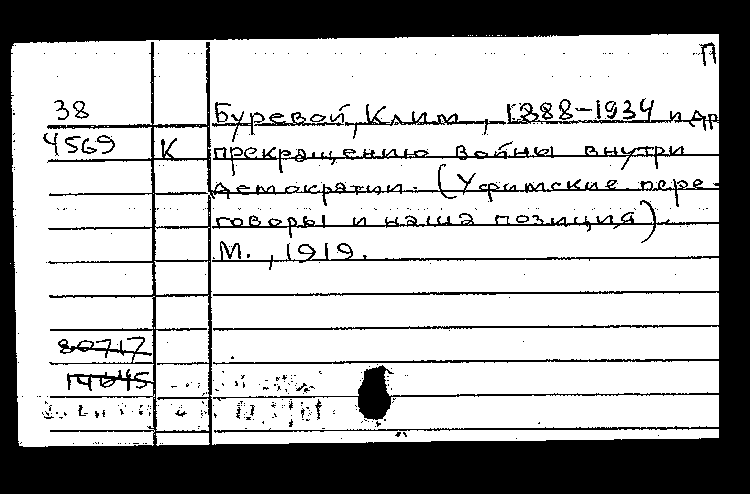 П
38 Буревой, Клим, 1888-1934 и др
4569 К прекращению войны внутри
демократии. (Уфимские пере-
говоры и наша позиция).
М., 1919.
80717
14645